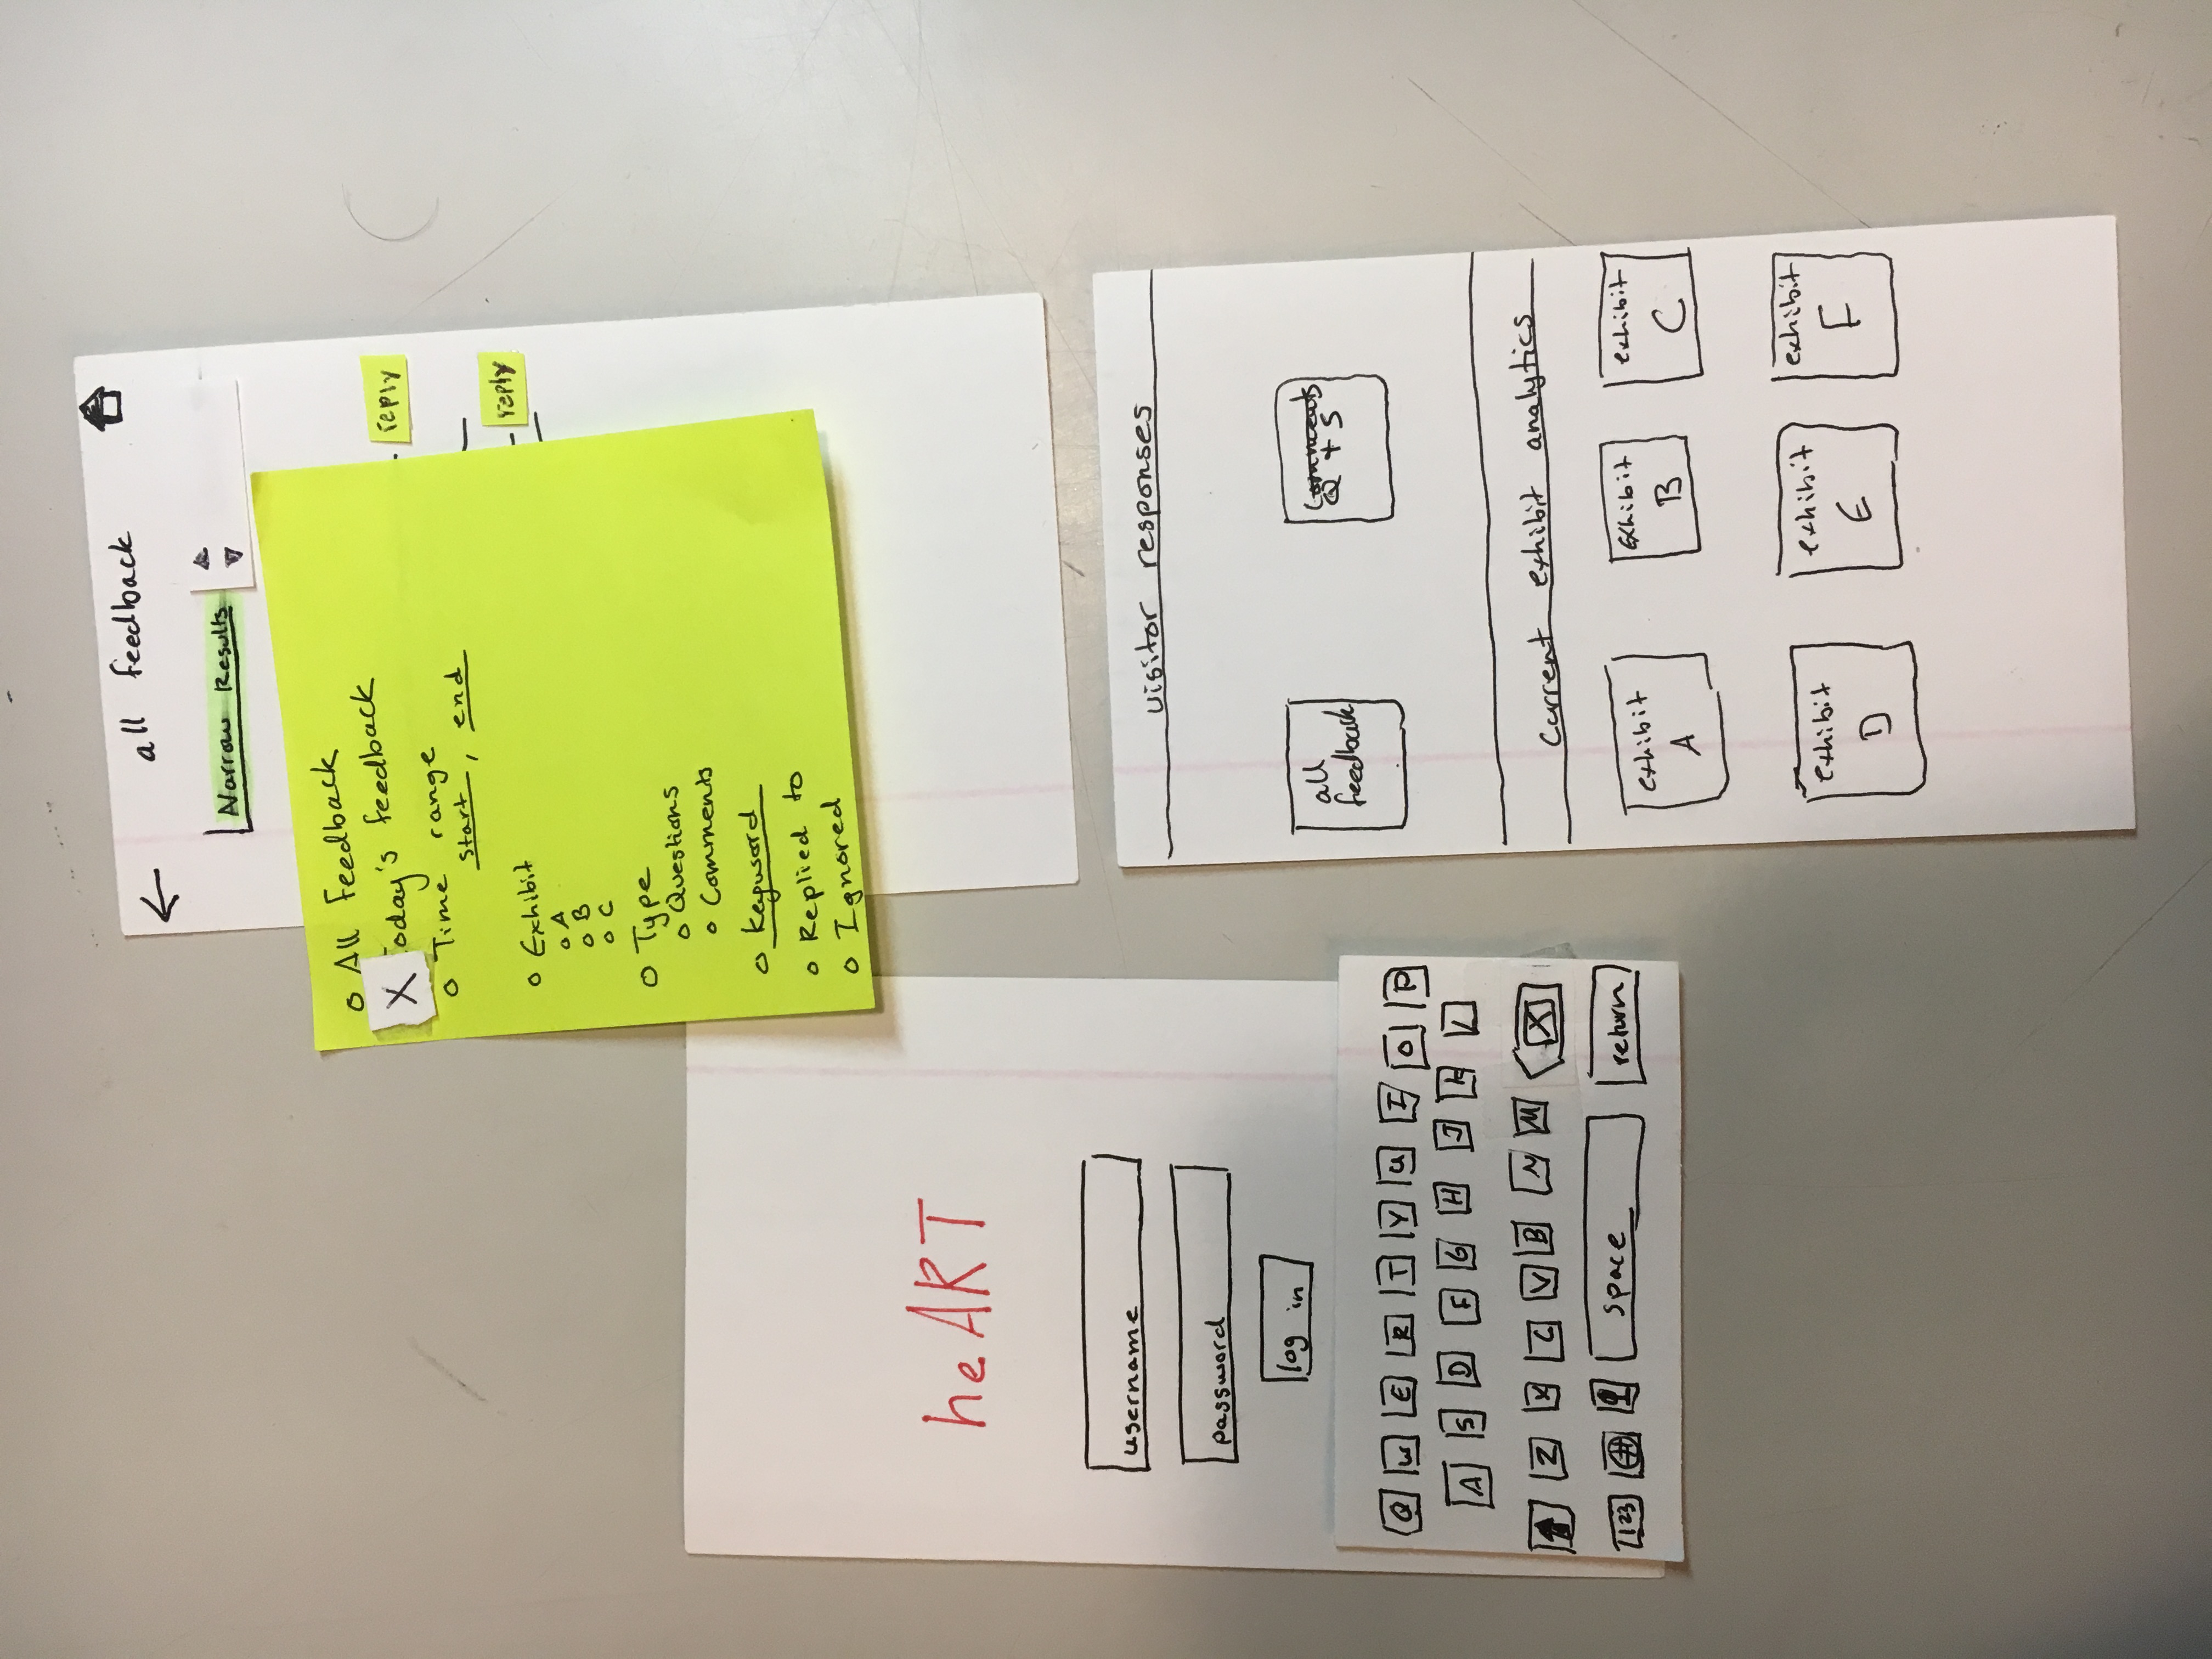 all feedback
Narrow Results
reply
reply
All Feedback
X oday's feedback
Time range
start, end
Exhibit
A
B
C
Type
Questions
Comments
keyword
Replied to
Ignored
heART
username
password
log in
Q W E R T Y U I O P
A S D F G H J K L
Z X C V B N M X
123 space return
visitor responses
all
feedback
Comments
Q + S
Current exhibit analytics
exhibit
A
Exhibit
B
exhibit
C
exhibit
D
exhibit
E
exhibit
F